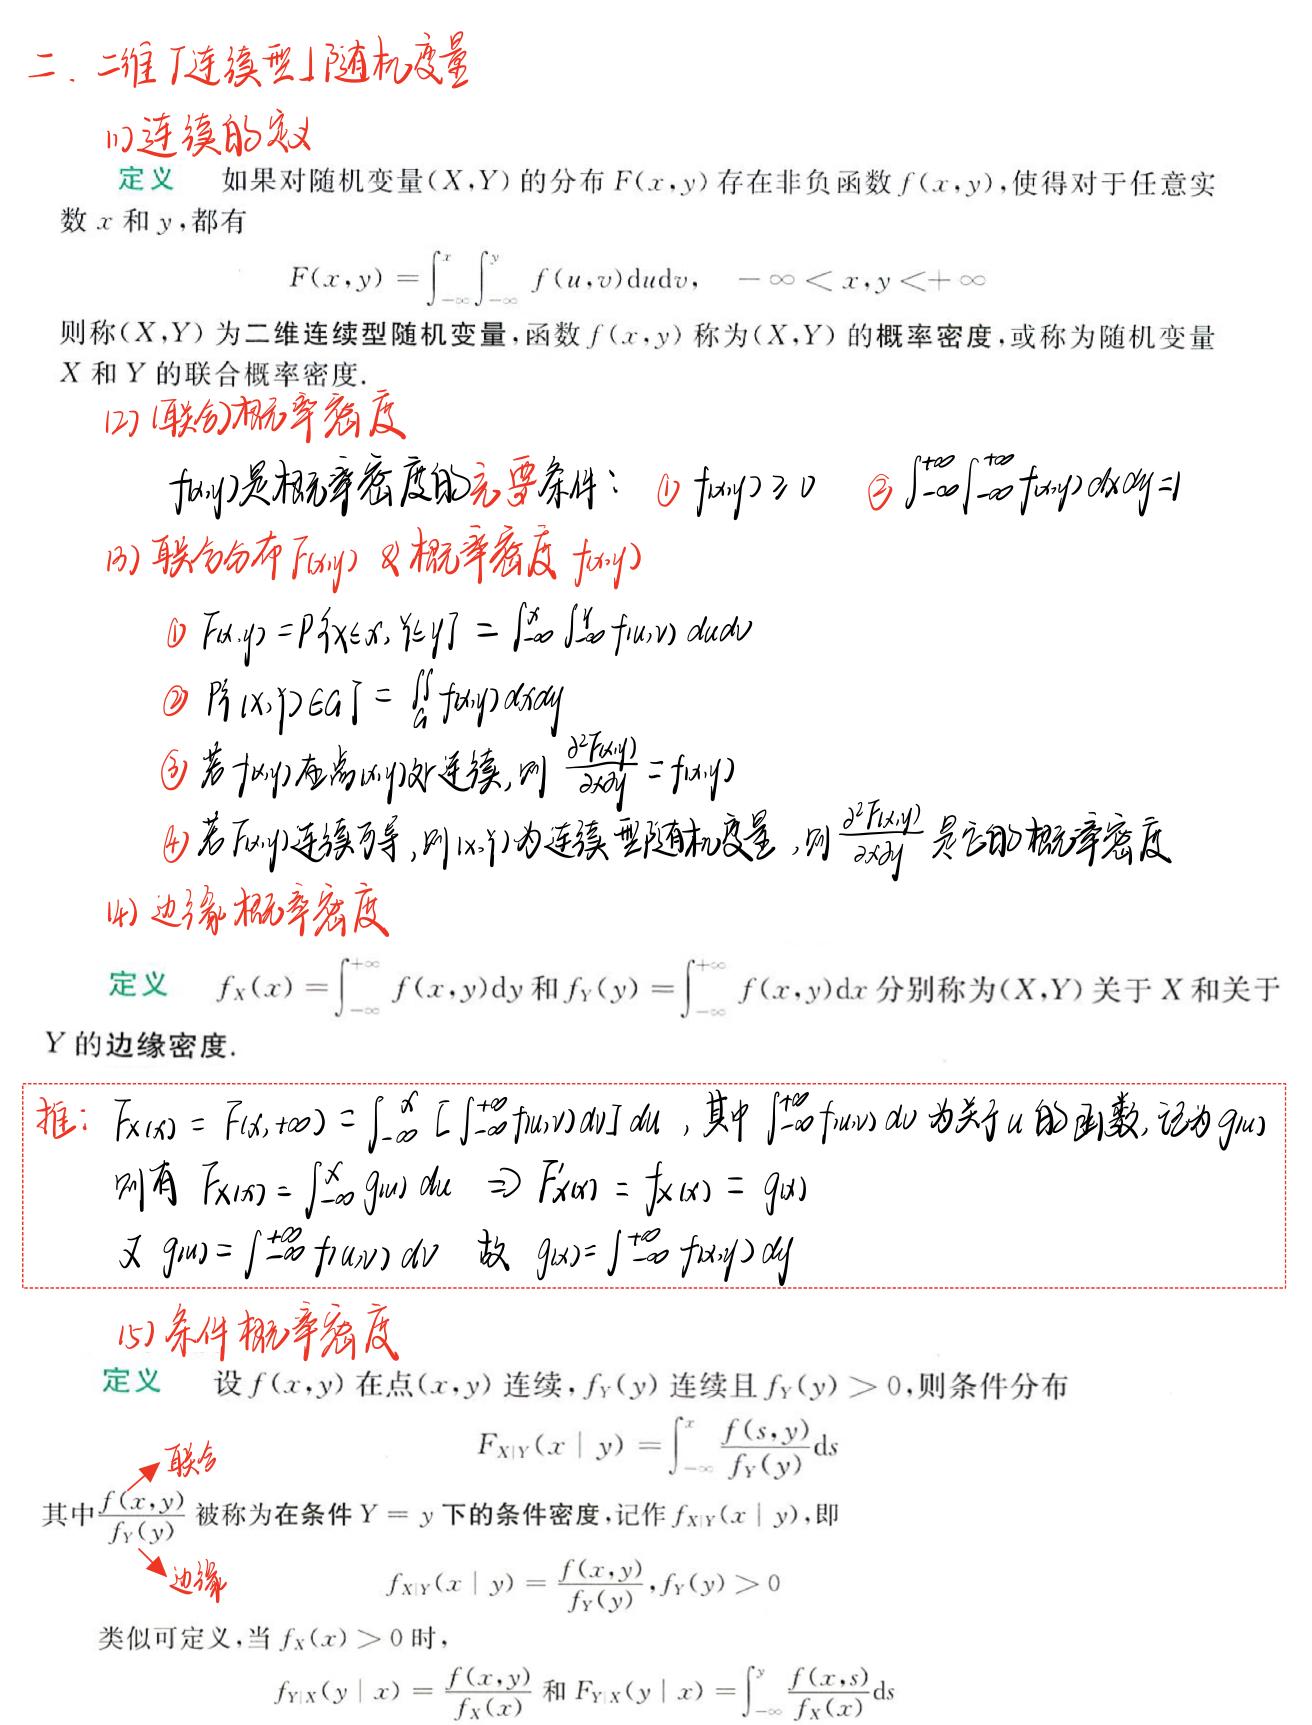 二. 二维「连续型」随机变量
(1) 连续的定义
定义 如果对随机变量(X,Y) 的分布 F(x,y) 存在非负函数 f(x,y),使得对于任意实
数 x 和 y,都有
F(x,y) = ∫_{-∞}^{x} ∫_{-∞}^{y} f(u,v)dudv, -∞ < x,y < +∞
则称(X,Y) 为二维连续型随机变量,函数 f(x,y) 称为(X,Y) 的概率密度,或称为随机变量
X 和 Y 的联合概率密度.
(2) (联合)概率密度
f(x,y)是概率密度的充要条件: ① f(x,y) ≥ 0 ② ∫_{-∞}^{+∞} ∫_{-∞}^{+∞} f(x,y) dxdy = 1
(3) 联合分布 F(x,y) & 概率密度 f(x,y)
① F(x,y) = P{X≤x, Y≤y} = ∫_{-∞}^{x} ∫_{-∞}^{y} f(u,v) dudv
② P{(X,Y)∈G} = ∬_G f(x,y) dxdy
③ 若 f(x,y) 在点(x,y)处连续,则 ∂²F(x,y)/∂x∂y = f(x,y)
④ 若 F(x,y)连续可导,则(X,Y)为连续型随机变量,则 ∂²F(x,y)/∂x∂y 是它的概率密度
(4) 边缘概率密度
定义 f_X(x) = ∫_{-∞}^{+∞} f(x,y)dy 和 f_Y(y) = ∫_{-∞}^{+∞} f(x,y)dx 分别称为(X,Y) 关于 X 和关于
Y 的边缘密度.
推: F_X(x) = F(x,+∞) = ∫_{-∞}^{x} [∫_{-∞}^{+∞} f(u,v) dv] du , 其中 ∫_{-∞}^{+∞} f(u,v) dv 为关于 u 的函数, 记为 g(u)
则有 F_X(x) = ∫_{-∞}^{x} g(u) du ⇒ F'_X(x) = f_X(x) = g(x)
又 g(u) = ∫_{-∞}^{+∞} f(u,v) dv 故 g(x) = ∫_{-∞}^{+∞} f(x,y) dy
(5) 条件概率密度
定义 设 f(x,y) 在点(x,y) 连续,f_Y(y) 连续且 f_Y(y) > 0,则条件分布
F_{X|Y}(x | y) = ∫_{-∞}^{x} f(s,y)/f_Y(y) ds
联合
其中 f(x,y)/f_Y(y) 被称为在条件 Y = y 下的条件密度,记作 f_{X|Y}(x | y),即
边缘
f_{X|Y}(x | y) = f(x,y)/f_Y(y) ,f_Y(y) > 0
类似可定义,当 f_X(x) > 0 时,
f_{Y|X}(y | x) = f(x,y)/f_X(x) 和 F_{Y|X}(y | x) = ∫_{-∞}^{y} f(x,s)/f_X(x) ds